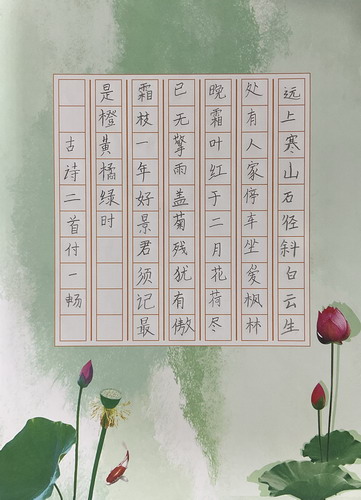 远上寒山石径斜白云生
处有人家停车坐爱枫林
晚霜叶红于二月花荷尽
已无擎雨盖菊残犹有傲
霜枝一年好景君须记最
是橙黄橘绿时
古诗二首付一畅